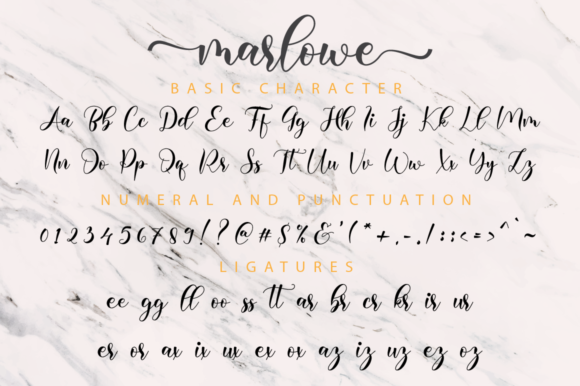 marlowe
BASIC CHARACTER
Aa Bb Cc Dd Ee Ff Gg Hh Ii Jj Kk Ll Mm
Nn Oo Pp Qq Rr Ss Tt Uu Vv Ww Xx Yy Zz
NUMERAL AND PUNCTUATION
0123456789!?@#$%&'(*+,-./:;<=>^`~
LIGATURES
ee gg ll oo ss tt ar br cr kr ir ur
er or ax ix ux ex ox az iz uz ez oz